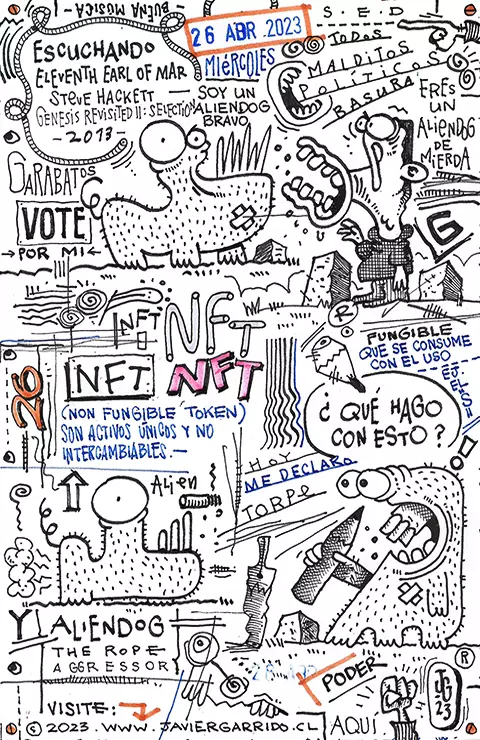 BUENA MUSICA
26 ABR 2023
MIÉRCOLES
S.E.D
ESCUCHANDO
ELEVENTH EARL OF MAR
STEVE HACKETT
GENESIS REVISITED II: SELECTION
- 2013 -
SOY UN
ALIENDOG
BRAVO
TODOS
MALDITOS
POLÍTICOS
BASURA
ERES
UN
ALIENDOG
DE
MIERDA
GARABATOS
VOTE
POR MI
G
NFT
NFT
NFT
NFT
26
(NON FUNGIBLE TOKEN)
SON ACTIVOS ÚNICOS Y NO
INTERCAMBIABLES.—
R
FUNGIBLE
QUE SE CONSUME
CON EL USO
¿ QUÉ HAGO
CON ESTO ?
HOY
ME DECLARO
TORPE
Alien
Y ALIENDOG
THE ROPE
AGGRESSOR
PODER
R
VISITE:
© 2023. WWW.JAVIERGARRIDO.CL
AQUÍ
JG
23